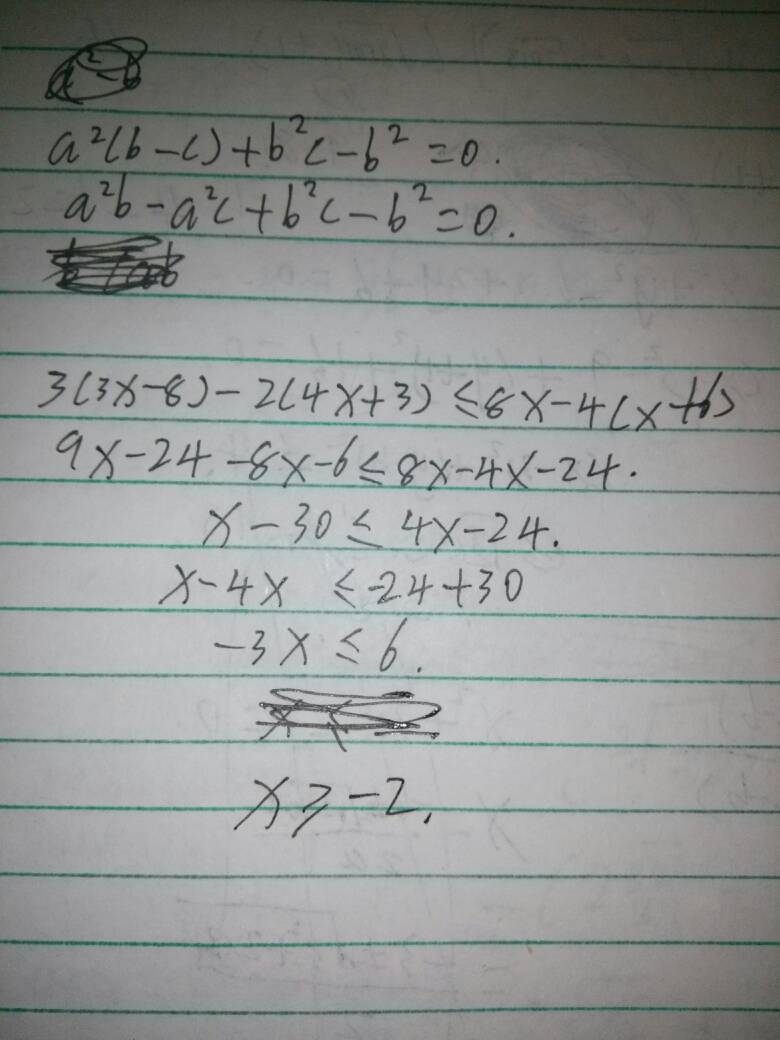 a²(b-c)+b²c-b²=0.
a²b-a²c+b²c-b²=0.
3(3x-8)-2(4x+3)≤8x-4(x+6)
9x-24-8x-6≤8x-4x-24.
x-30≤4x-24.
x-4x≤-24+30
-3x≤6.
x≥-2.